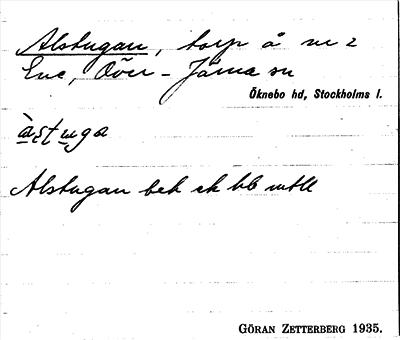 Alstugan, torp å nr 2
Ene, Över-Järna sn
Öknebo hd, Stockholms l.
àstuga
Alstugan bet ek hb mtl
GÖRAN ZETTERBERG 1935.